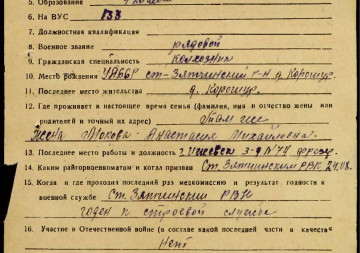 5. Образование
6. На ВУС 133
7. Должностная квалификация
8. Военное звание рядовой
9. Гражданская специальность колхозник
10. Место рождения УАССР Ст-Зятцинский р-н д. Корошур
11. Последнее место жительства д. Корошур
12. Где проживает в настоящее время семья (фамилия, имя и отчество жены или
родителей и точный их адрес) Там же
Жена Анастасия Михайловна
13. Последнее место работы и должность г. Ижевск з-д №74
14. Каким райгорвоенкоматом и когда призван Ст. Зятцинский РВК 24.08.
15. Когда и где проходил последний раз медкомиссию и результат годности к
военной службе Ст. Зятцинский РВК
годен к строевой службе
16. Участие в Отечественной войне (в составе какой последней части в качестве
Нет